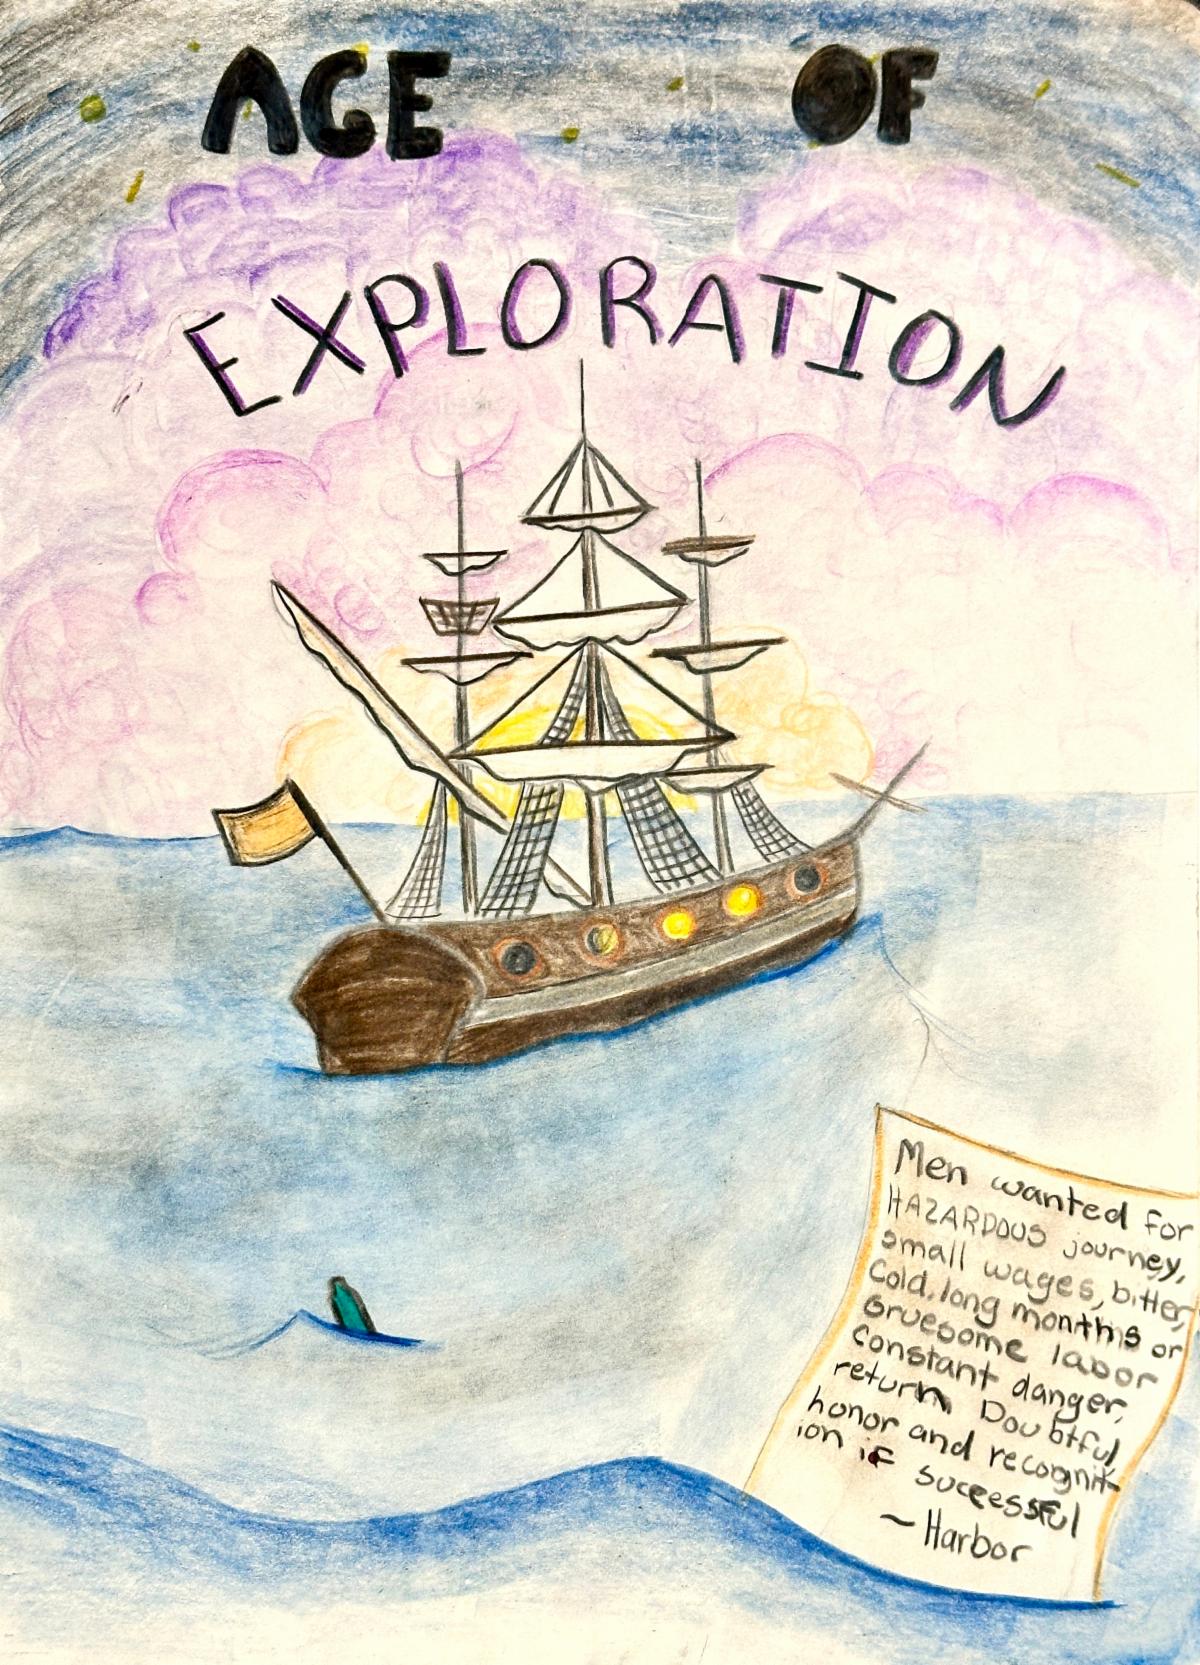 AGE OF
EXPLORATION
Men wanted for
HAZARDOUS journey,
small wages, bitter,
Cold, long months or
Gruesome labor
constant danger,
return Doubtful,
honor and recognit-
ion if successful
~Harbor